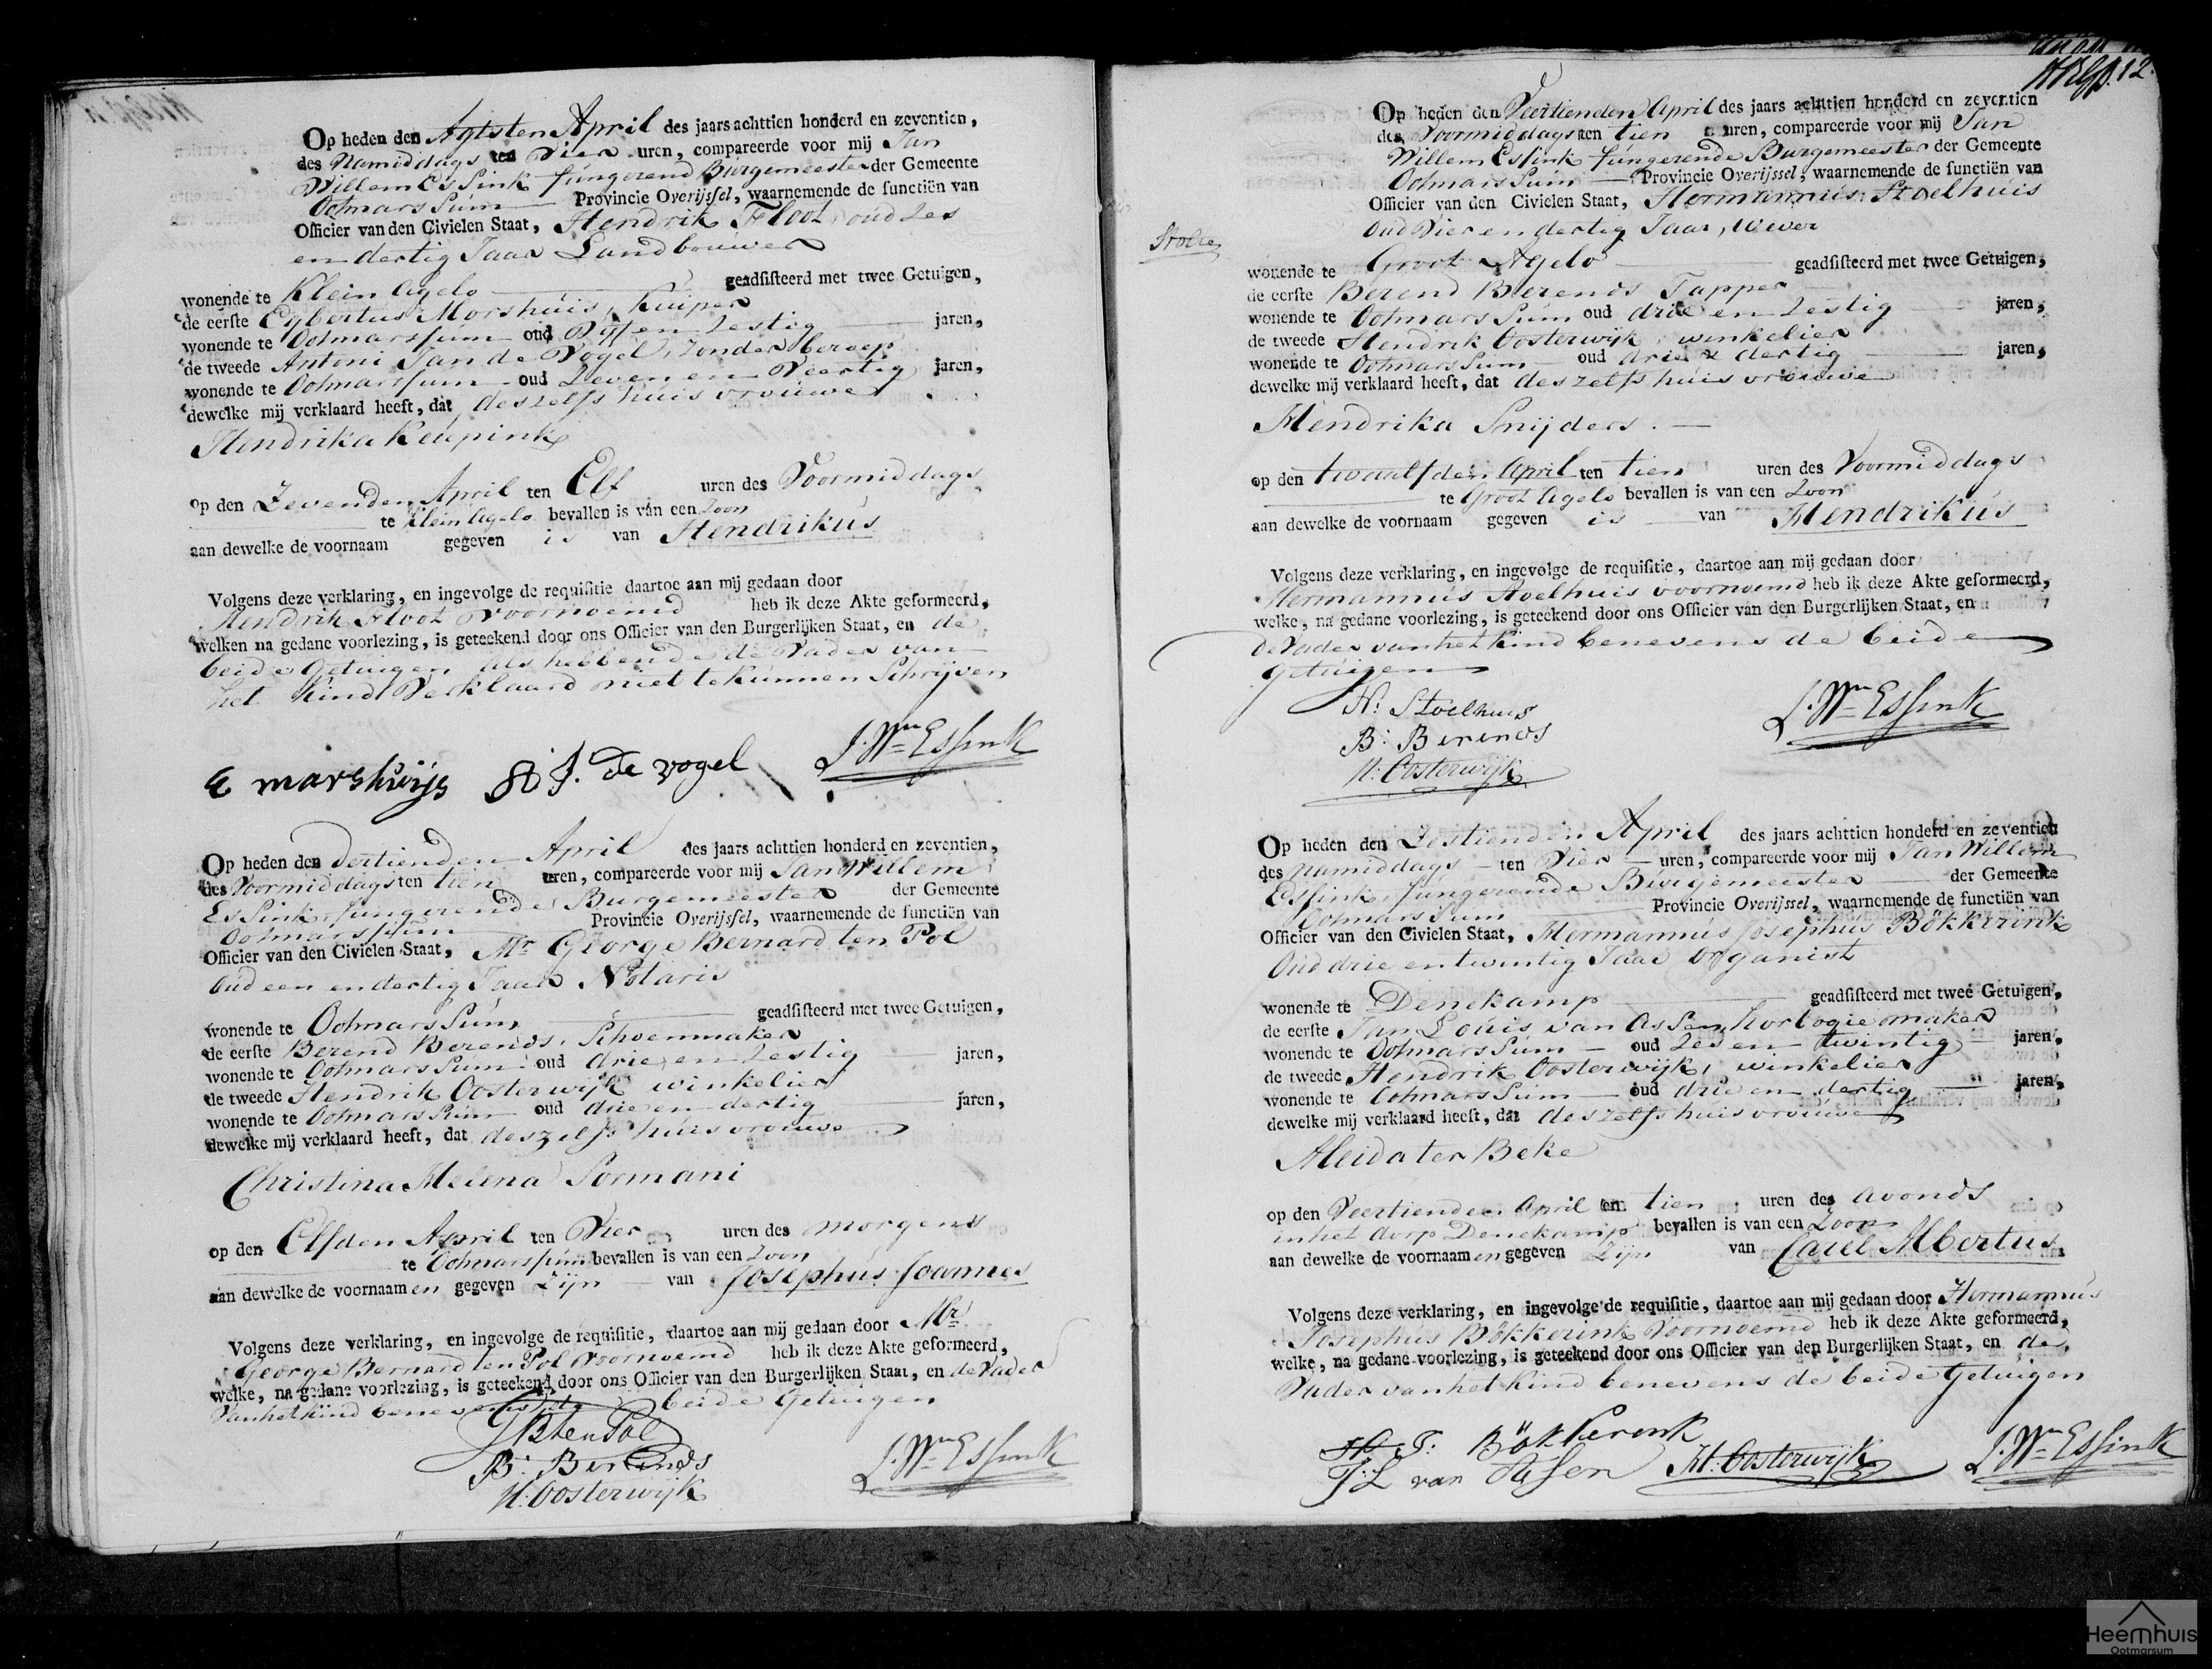 Op heden den Agtsten April des jaars achttien honderd en zeventien,
des Namiddags ten Vier uren, compareerde voor mij Jan
Willem Essink fungerend Burgemeester der Gemeente
Ootmarssum Provincie Overijssel, waarnemende de functiën van
Officier van den Civielen Staat, Hendrik Floot oud Zes
en dertig Jaar Landbouwer
wonende te Klein Agelo geadsisteerd met twee Getuigen,
de eerste Egbertus Morshuis, Kuiper
wonende te Ootmarssum oud Vyf en Zestig jaren,
de tweede Antoni Jan de Vogel, zonder beroep
wonende te Ootmarssum oud Zeven en Veertig jaren,
dewelke mij verklaard heeft, dat deszelfs huisvrouwe
Hendrika Keupink
op den Zevenden April ten Elf uren des Voormiddags
te Klein Agelo bevallen is van een Zoon
aan dewelke de voornaam gegeven is van Hendrikus
Volgens deze verklaring, en ingevolge de requisitie daartoe aan mij gedaan door
Hendrik Floot voornoemd heb ik deze Akte geformeerd,
welken na gedane voorlezing, is geteekend door ons Officier van den Burgerlijken Staat, en de
beide Getuigen als hebbende de Vader van
het Kind Verklaard niet te kunnen Schrijven
J. Wm Essink
E marshuijs A J. De vogel
Op heden den dertienden April des jaars achttien honderd en zeventien,
des Voormiddags ten tien uren, compareerde voor mij Jan Willem
Essink fungerende Burgemeester der Gemeente
Ootmarssum Provincie Overijssel, waarnemende de functiën van
Officier van den Civielen Staat, Mr George Bernard ten Pol
Oud een en dertig Jaar Notaris
wonende te Ootmarssum geadsisteerd met twee Getuigen,
de eerste Berend Berends, Schoenmaker
wonende te Ootmarssum oud drie en Zestig jaren,
de tweede Hendrik Oosterwijk winkelier
wonende te Ootmarssum oud drie en dertig jaren,
dewelke mij verklaard heeft, dat deszelfs huisvrouwe
Christina Helena Sormani
op den Elfden April ten Vier uren des morgens
te Ootmarssum bevallen is van een Zoon
aan dewelke de voornaamen gegeven Zijn van Josephus Joannes
Volgens deze verklaring, en ingevolge de requisitie, daartoe aan mij gedaan door Mr
George Bernard ten Pol voornoemd heb ik deze Akte geformeerd,
welke, na gedane voorlezing, is geteekend door ons Officier van den Burgerlijken Staat, en de Vader
van het kind benevens de beide Getuigen
GBtenPol
B: Berends
H. Oosterwijk
J. Wm Essink
12
Op heden den Veertienden April des jaars achttien honderd en zeventien
des Voormiddags ten tien uren, compareerde voor mij Jan
Willem Essink fungerende Burgemeester der Gemeente
Ootmarssum Provincie Overijssel, waarnemende de functiën van
Officier van den Civielen Staat, Hermannus Stoelhuis
Oud Vier en dertig Jaar, Wever
Stolte
wonende te Groot Agelo geadsisteerd met twee Getuigen,
de eerste Berend Berends Tapper
wonende te Ootmarssum oud drie en Zestig jaren,
de tweede Hendrik Oosterwijk winkelier
wonende te Ootmarssum oud drie & dertig jaren,
dewelke mij verklaard heeft, dat deszelfs huisvrouwe
Hendrika Snijders.
op den twaalfden April ten tien uren des Voormiddags
te Groot Agelo bevallen is van een Zoon
aan dewelke de voornaam gegeven is van Hendrikus
Volgens deze verklaring, en ingevolge de requisitie, daartoe aan mij gedaan door
Hermannus Stoelhuis voornoemd heb ik deze Akte geformeerd,
welke, na gedane voorlezing, is geteekend door ons Officier van den Burgerlijken Staat, en
de Vader van het Kind benevens de beide
getuigen
H: Stoelhuis
B: Berends
H: Oosterwijk
J. Wm Essink
Op heden den Zestienden April des jaars achttien honderd en zeventien
des Namiddags ten Vier uren, compareerde voor mij Jan Willem
Essink, fungerende Burgemeester der Gemeente
Ootmarssum Provincie Overijssel, waarnemende de functiën van
Officier van den Civielen Staat, Hermannus Josephus Bökkerink
Oud drie en twintig Jaar Organist
wonende te Denekamp geadsisteerd met twee Getuigen,
de eerste Jan Louis van Assen, horlogiemaker
wonende te Ootmarssum oud Zes en twintig jaren,
de tweede Hendrik Oosterwijk, winkelier
wonende te Ootmarssum oud drie en dertig jaren,
dewelke mij verklaard heeft, dat deszelfs huisvrouwe
Aleida ter Beke
op den Veertienden April ten tien uren des avonds
in het dorp Denekamp bevallen is van een Zoon
aan dewelke de voornaamen gegeven Zijn van Carel Albertus
Volgens deze verklaring, en ingevolge de requisitie, daartoe aan mij gedaan door Hermannus
Josephus Bökkerink Voornoemd heb ik deze Akte geformeerd,
welke, na gedane voorlezing, is geteekend door ons Officier van den Burgerlijken Staat, en de
Vader van het Kind benevens de beide Getuigen
H. J: Bökkerenk
J: L van Assen H: Oosterwijk
J. Wm Essink
Heemhuis
Ootmarsum